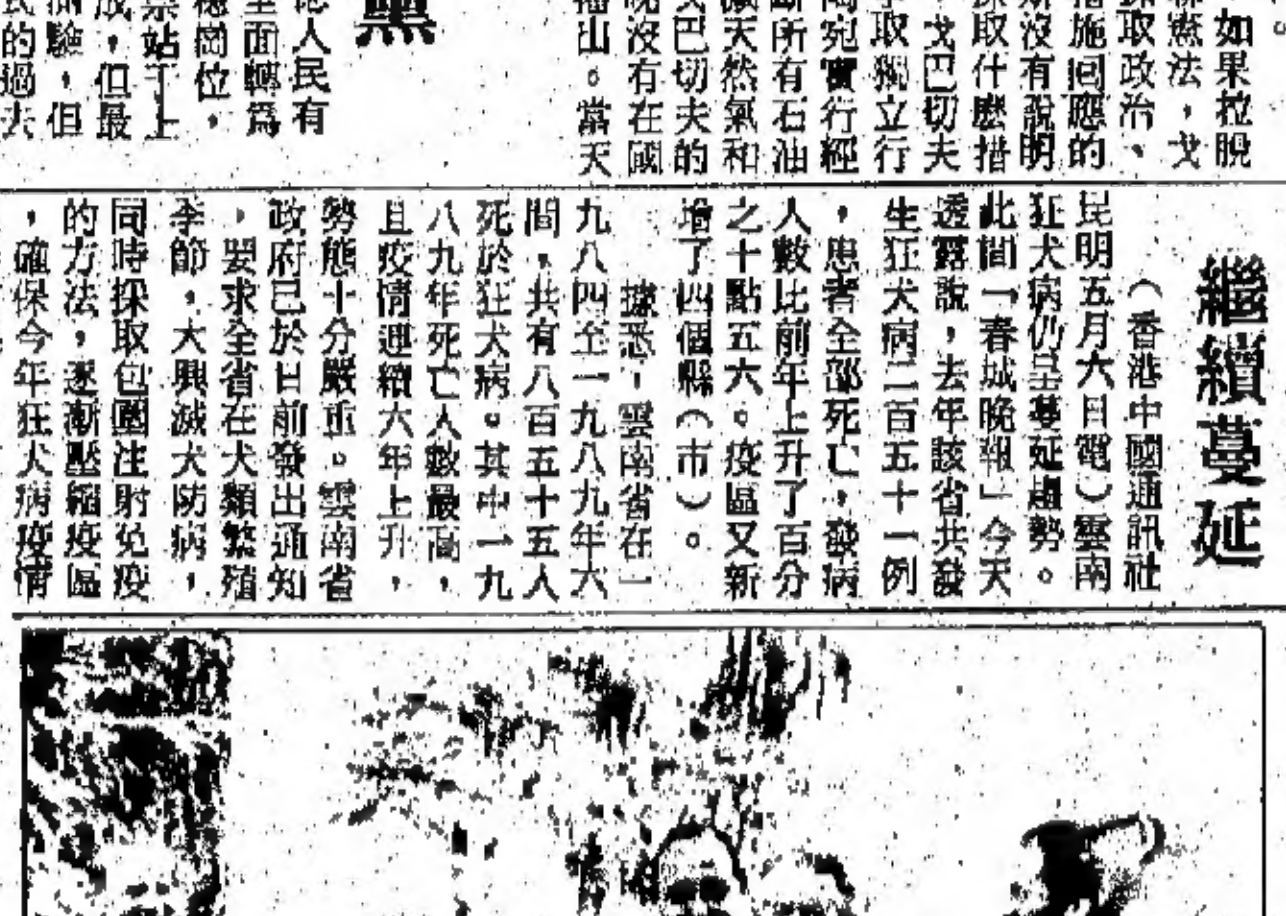 。
如果拉脫
聯憲法，戈
採取政治、
措施回應的
斯沒有說明
採取什麼措
戈巴切夫
取獨立行
宛實行經
斷所有石油
天然氣和
戈巴切夫的
晚沒有在國
播出。當天
黨
人民有
全面轉爲
崗位，
票站
成，但最
測驗，但
民的過去
繼續蔓延
（香港中國通訊社
昆明五月六日電）雲南
狂犬病仍呈蔓延趨勢。
此間「春城晚報」今天
透露說，去年該省共發
生狂犬病二百五十一例
，患者全部死亡，發病
人數比前年上升了百分
之十點五六。疫區又新
增了四個縣（市）。
據悉，雲南省在一
九八四至一九八九年六
間，共有八百五十五人
死於狂犬病。其中一九
八九年死亡人數最高，
且疫情連續六年上升，
勢態十分嚴重。雲南省
政府已於日前發出通知
，要求全省在犬類繁殖
季節，大興滅犬防病，
同時採取包圍注射免疫
的方法，逐漸壓縮疫區
，確保今年狂犬病疫情